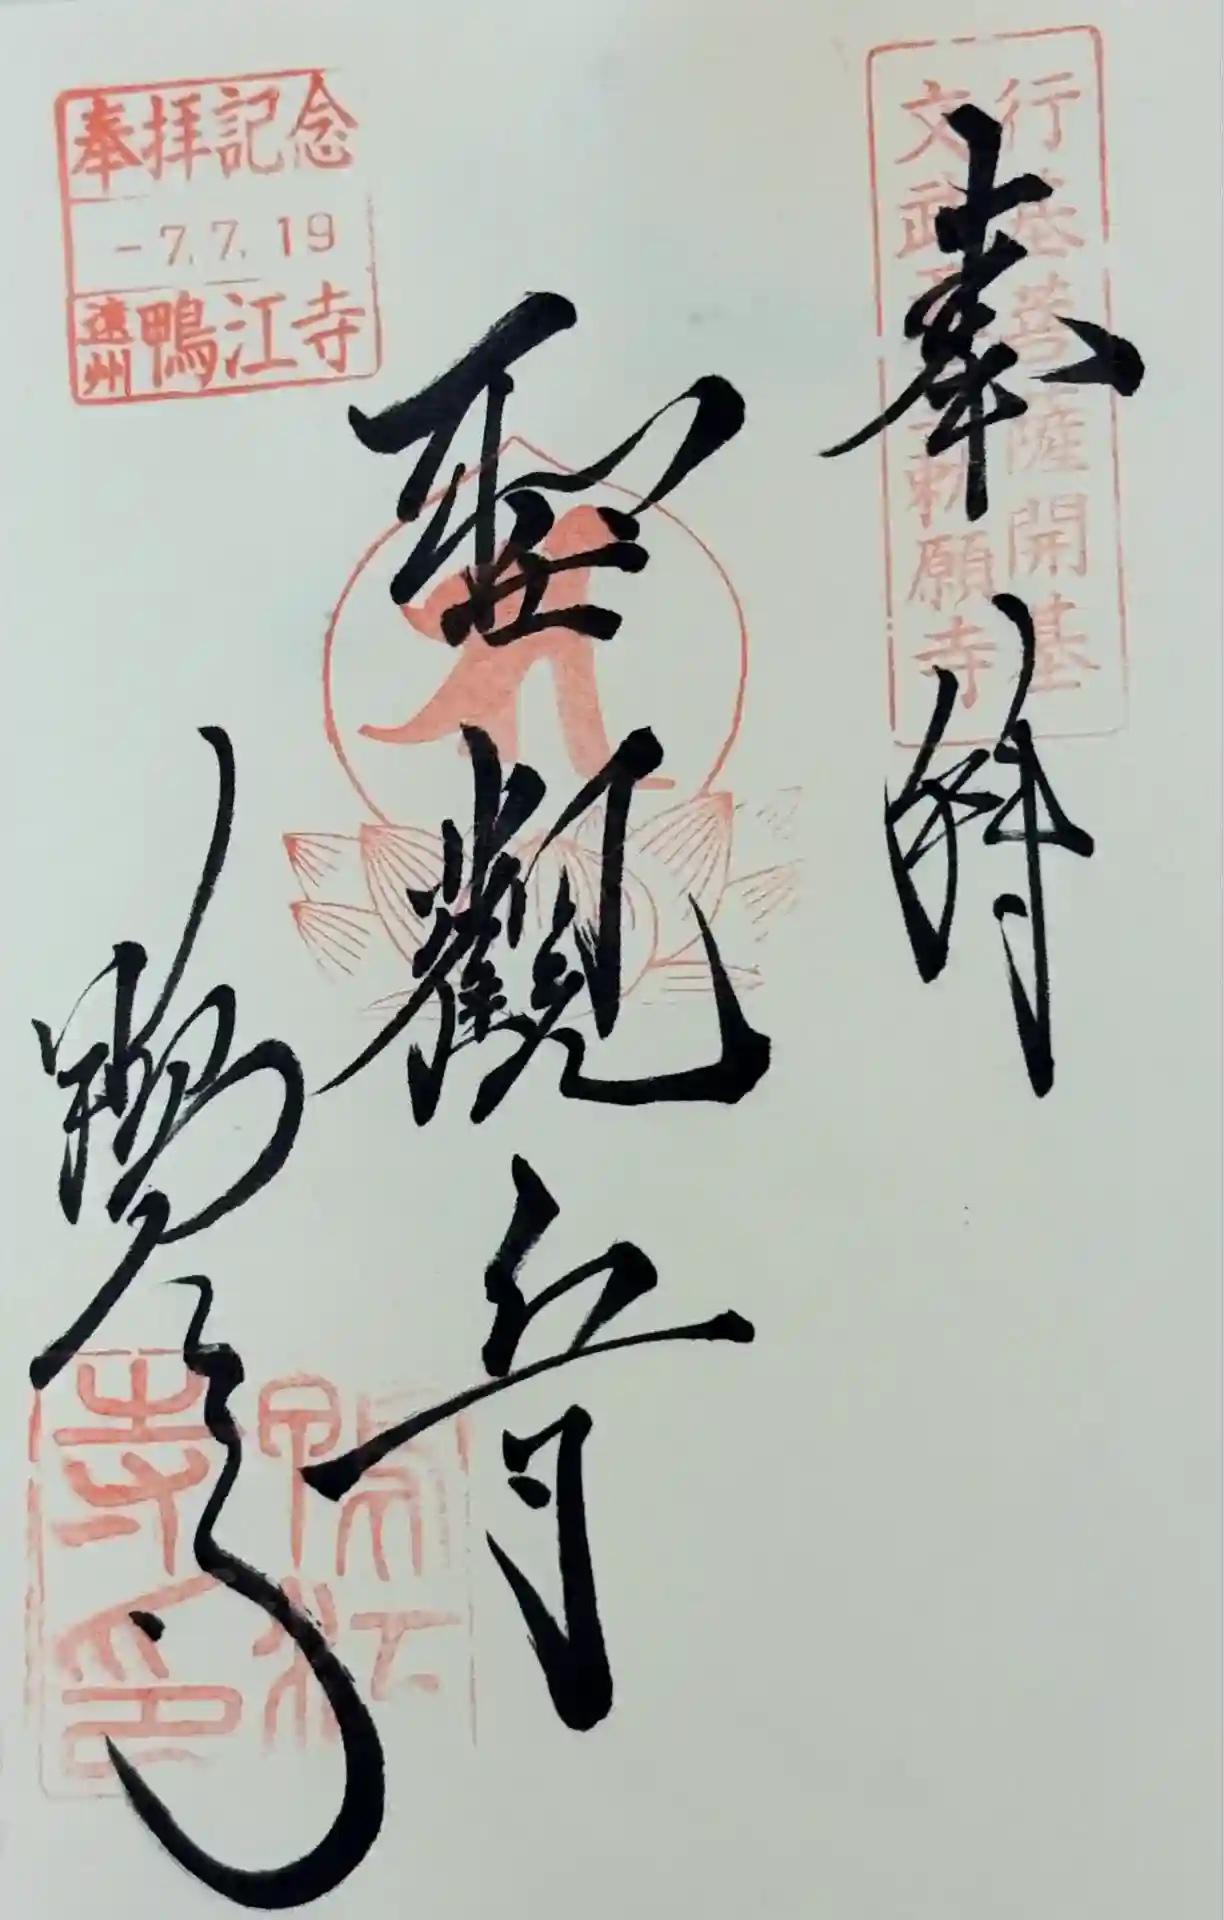 行基菩薩開基
文武天皇勅願寺
奉拝
聖観音
鴨江寺
奉拝記念
-7.7.19
遠州鴨江寺
鴨江
寺印